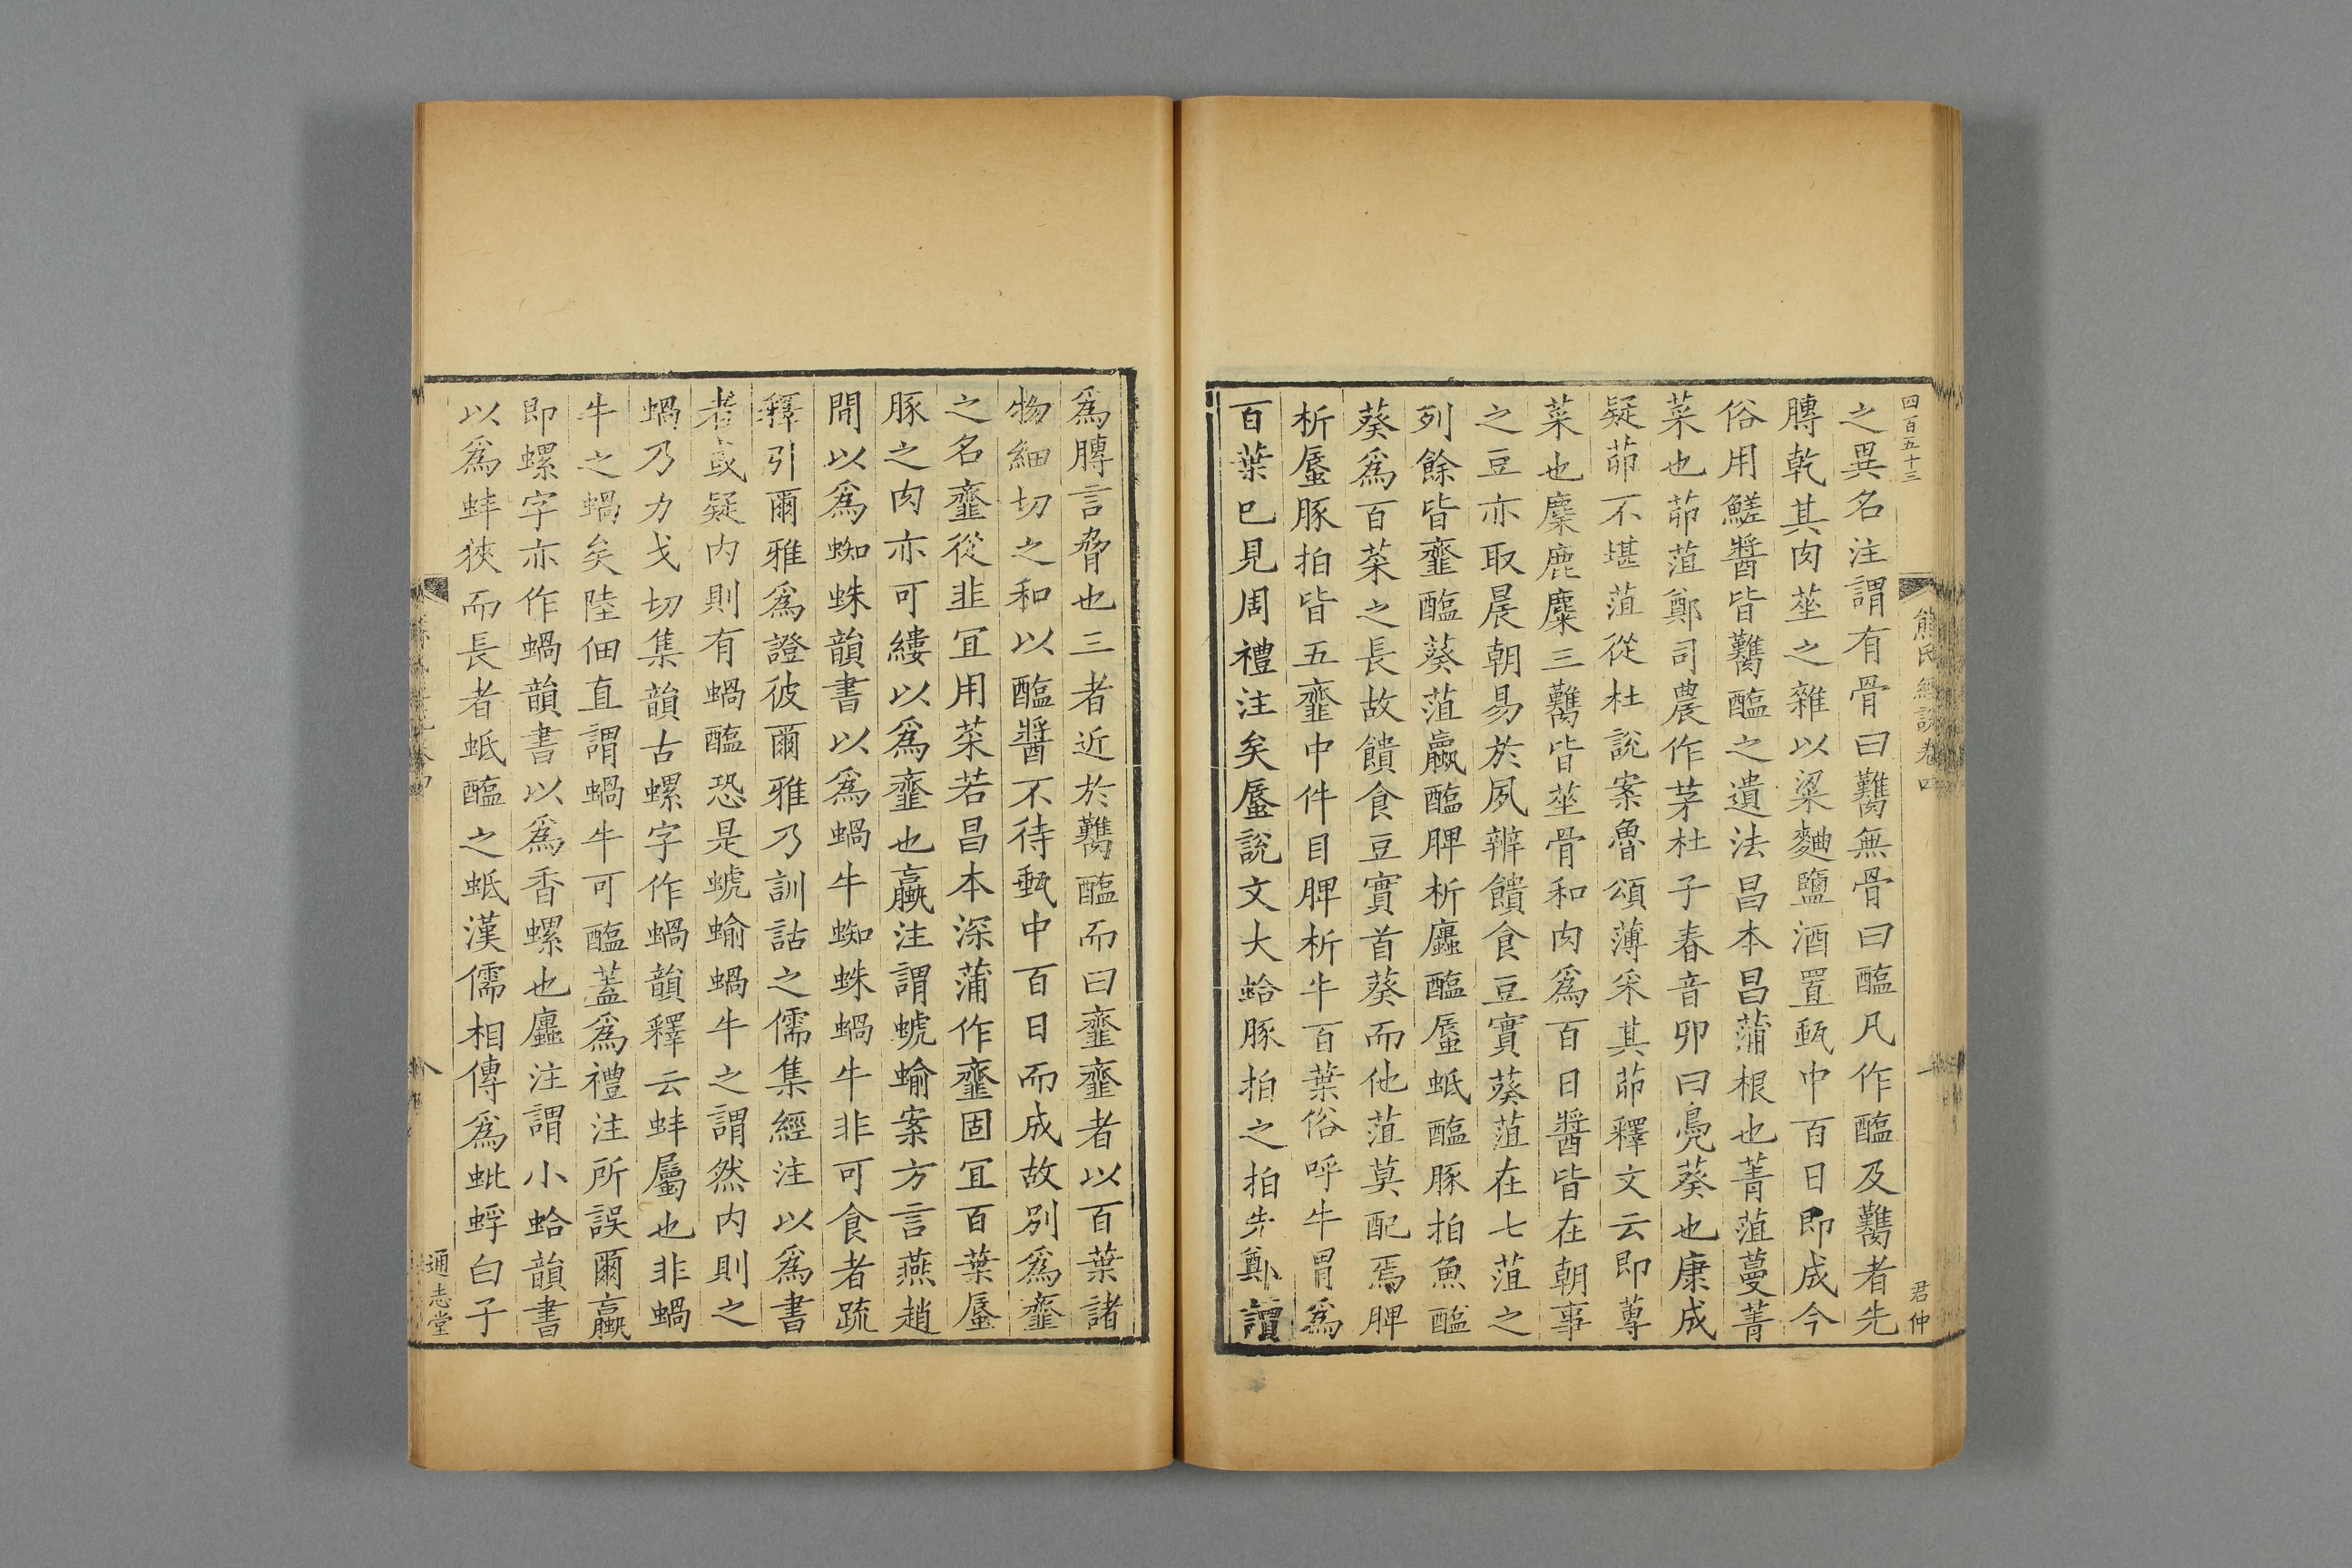 四百五十三
熊氏經說卷四
君仲
之異名注謂有骨曰臡無骨曰醢凡作醢及臡者先
膞乾其肉莝之雜以粱麴鹽酒置甀中百日即成今
俗用鮺醬皆臡醢之遺法昌本昌蒲根也菁菹蔓菁
菜也茆菹鄭司農作茅杜子春音卯曰鳧葵也康成
疑茆不堪菹從杜說案魯頌薄采其茆釋文云即蓴
菜也麋鹿麇三臡皆莝骨和肉爲百日醬皆在朝事
之豆亦取晨朝易於夙辨饋食豆實葵菹在七菹之
列餘皆虀醢葵菹蠃醢脾析蠯醢蜃蚳醢豚拍魚醢
葵爲百菜之長故饋食豆實首葵而他菹莫配焉脾
析蜃豚拍皆五虀中件目脾析牛百葉俗呼牛胃爲
百葉已見周禮注矣蜃說文大蛤豚拍之拍先鄭讀
爲膊言脅也三者近於臡醢而曰虀虀者以百葉諸
物細切之和以醢醬不待甀中百日而成故別爲虀
之名虀從韭宜用菜若昌本深蒲作虀固宜百葉蜃
豚之肉亦可縷以爲虀也蠃注謂螔蝓案方言燕趙
間以爲蜘蛛韻書以爲蝸牛蜘蛛蝸牛非可食者疏
釋引爾雅爲證彼爾雅乃訓詁之儒集經注以爲書
者或疑内則有蝸醢恐是螔蝓蝸牛之謂然内則之
蝸乃力戈切集韻古螺字作蝸韻釋云蚌屬也非蝸
牛之蝸矣陸佃直謂蝸牛可醢蓋爲禮注所誤爾蠃
即螺字亦作蝸韻書以爲香螺也蠯注謂小蛤韻書
以爲蚌狹而長者蚳醢之蚳漢儒相傳爲蚍蜉白子
通志堂